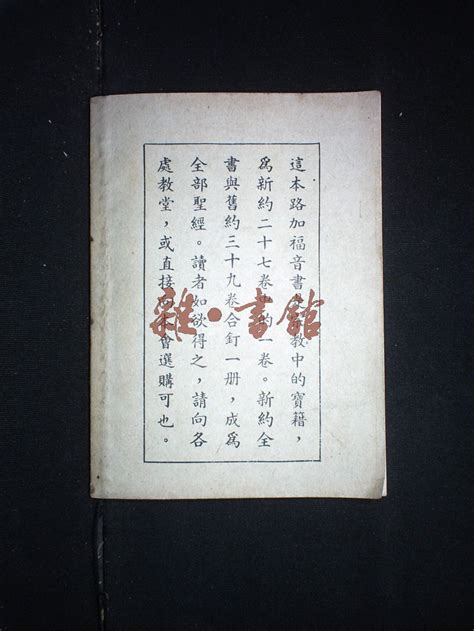 這本路加福音書教中的寶籍，
爲新約二十七卷中的一卷。新約全
書與舊約三十九卷合釘一册，成爲
全部聖經。讀者如欲得之，請向各
處教堂，或直接向會選購可也。
雜·書館